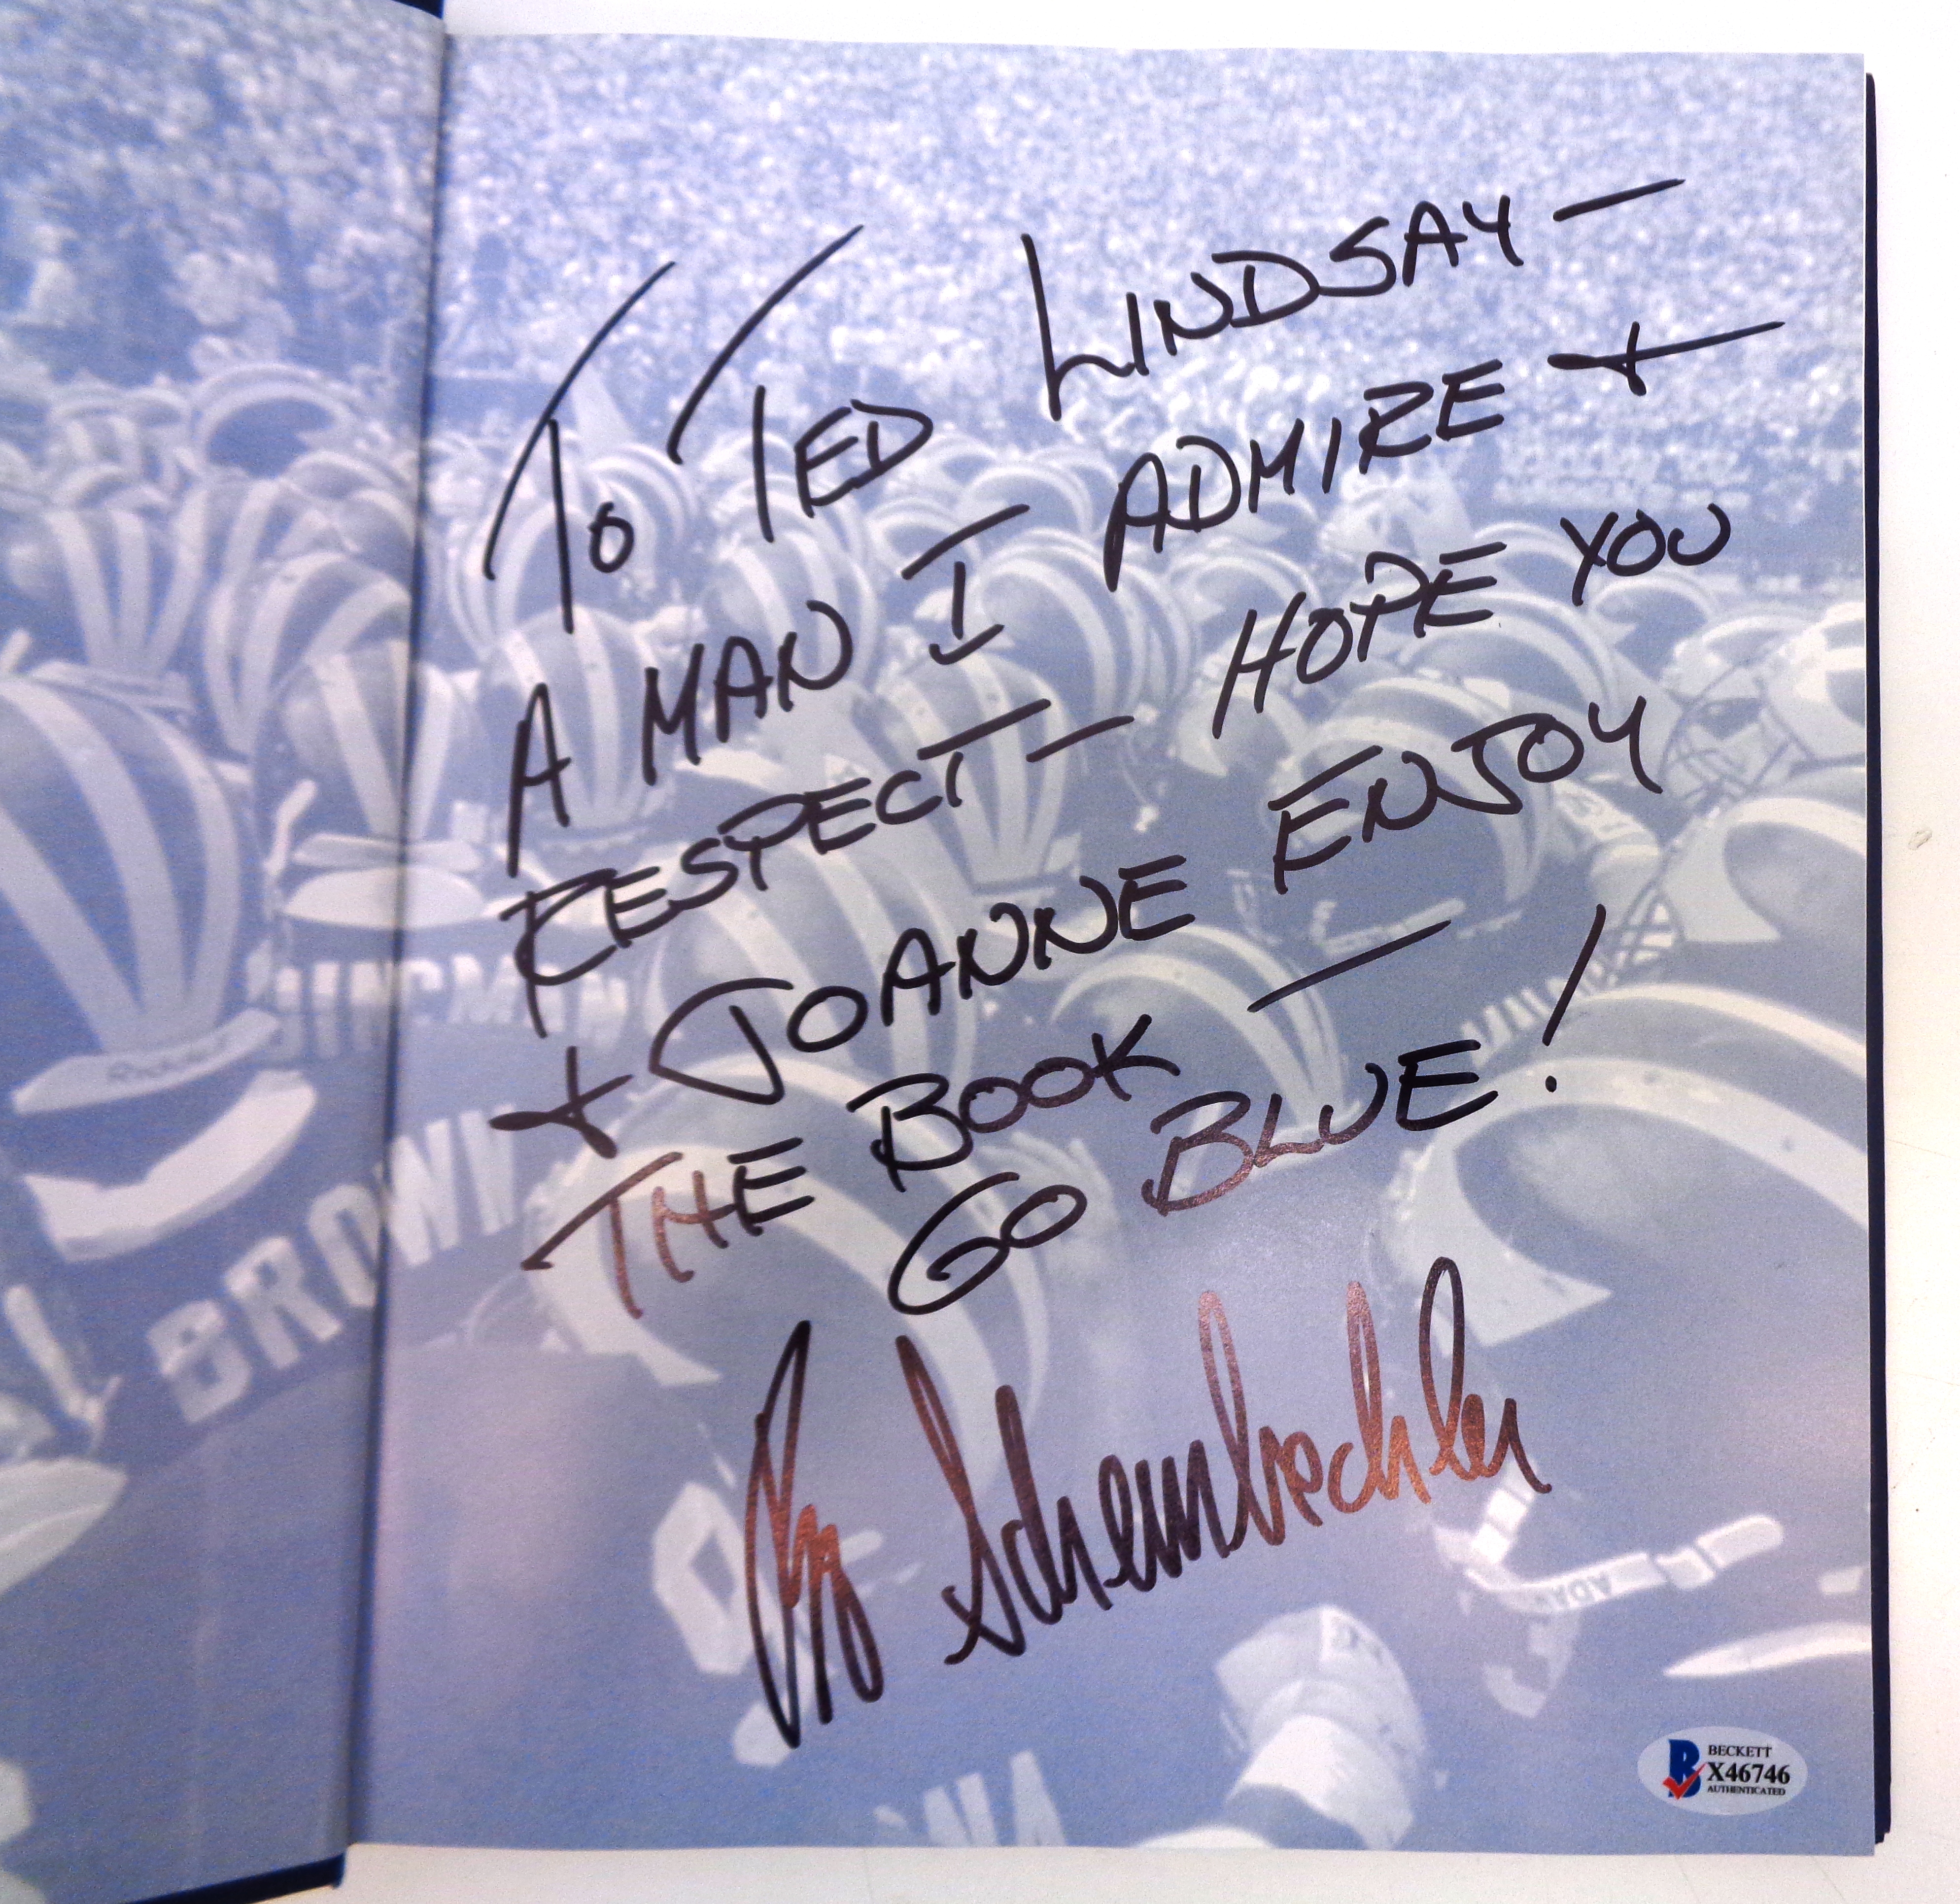 To TED LINDSAY —
A MAN I ADMIRE +
RESPECT — HOPE YOU
+ JOANNE ENJOY
THE BOOK —
GO BLUE!
Bo Schembechler
BROWN
ADAMS
BECKETT
X46746
AUTHENTICATED